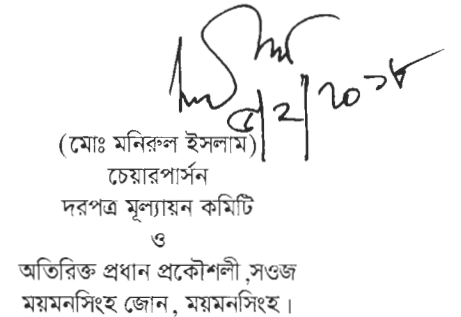 ৫/২/২০১৮
(মোঃ মনিরুল ইসলাম)
চেয়ারপার্সন
দরপত্র মূল্যায়ন কমিটি
ও
অতিরিক্ত প্রধান প্রকৌশলী ,সওজ
ময়মনসিংহ জোন, ময়মনসিংহ।